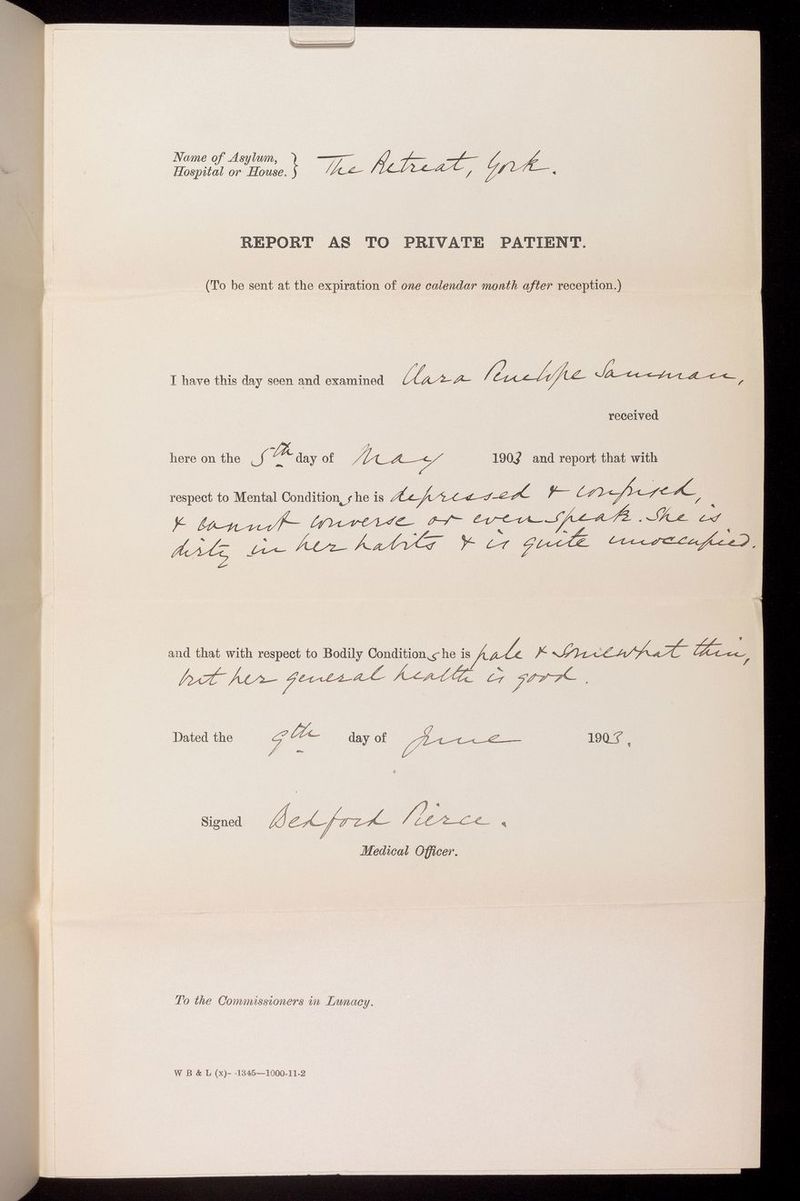 Name of Asylum, } The Retreat, York.
Hospital or House. }
REPORT AS TO PRIVATE PATIENT.
(To be sent at the expiration of one calendar month after reception.)
I have this day seen and examined Clara Penelope Samman,
received
here on the 5th day of May 1903 and report that with
respect to Mental Condition, she is depressed & confused,
& cannot converse or even speak. She is
dirty in her habits & is quite unoccupied.
and that with respect to Bodily Condition, she is pale & somewhat thin,
but her general health is good.
Dated the 9th day of June 1903.
Signed Bedford Pierce.
Medical Officer.
To the Commissioners in Lunacy.
W B & L (X)- -1345—1000-11-2